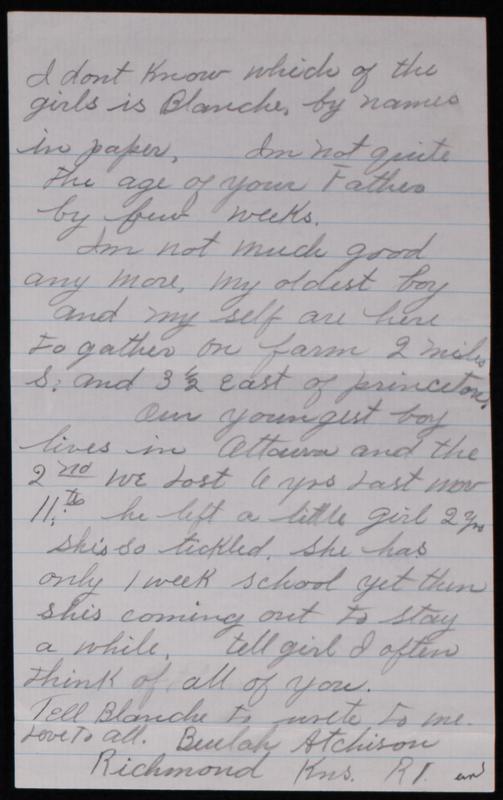 I dont Know which of the
girls is Blanche, by names
in paper, Im not quite
the age of your Father
by few weeks.
Im not much good
any more, my oldest boy
and my self are here
to gather on farm 2 miles
S; and 3 ½ East of princeton.
Our youngest boy
lives in Ottawa and the
2nd we Lost 6 yrs Last nov
11;th he left a little girl 2 yrs
shis so tickled. She has
only 1 week school yet then
shis coming out to stay
a while, tell girl I often
think of all of you.
Tell Blanche to write to me.
Love To all. Beulah Atchison
Richmond Kns. R1.